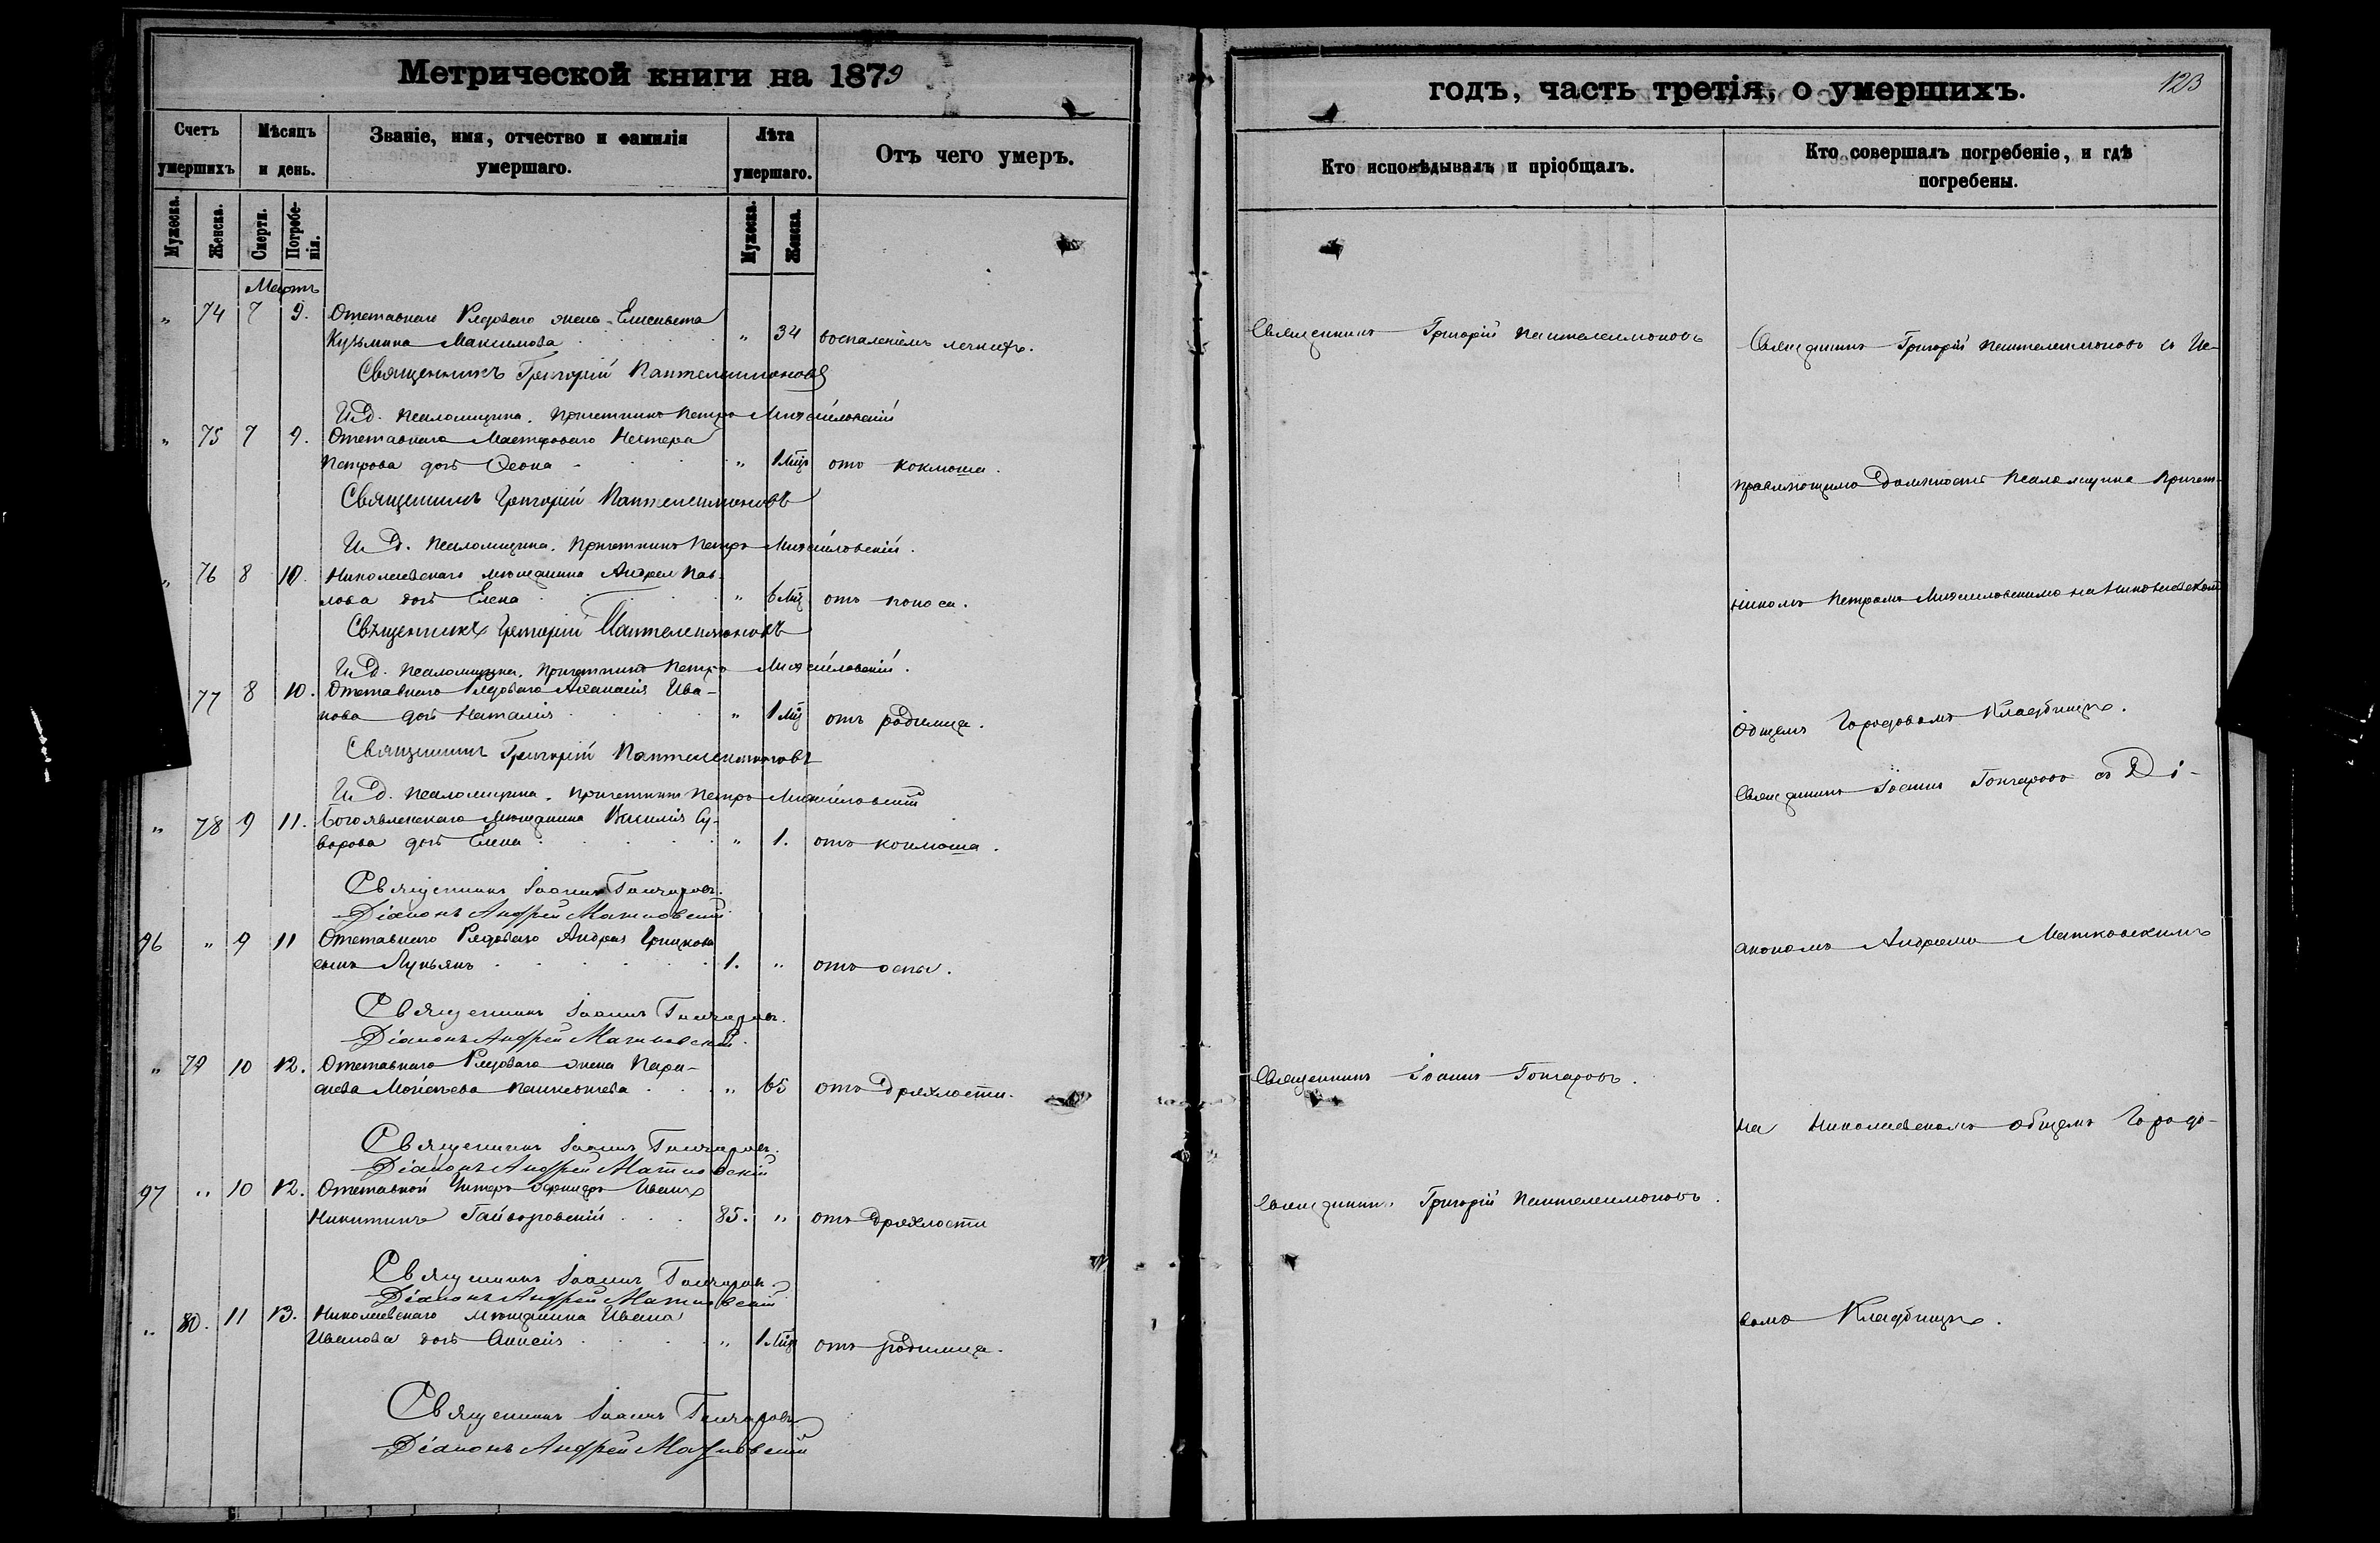 Метрической книги на 1879
Счетъ умершихъ
Мѣсяцъ и день.
Званіе, имя, отчество и фамилія умершаго.
Лѣта умершаго.
Отъ чего умеръ.
Мужеска. Женска. Смерти. Погребенія. Мужеска. Женска.
Мартъ
" 74 7 9. Отставнаго Рядоваго жена Елисавета
Кузьмина Максимова " 34 воспаленіемъ легкихъ.
Священникъ Григорій Пантелеимоновъ
И. Д. Псаломщика. Причетникъ Петръ Михайловскій
" 75 7 9. Отставнаго Мастероваго Нестера
Петрова дочь Ѳеона " 1 Мцъ отъ коклюша.
Священникъ Григорій Пантелеимоновъ
И. Д. Псаломщика. Причетникъ Петръ Михайловскій.
" 76 8 10. Николаевскаго мѣщанина Андрея Пав-
лова дочь Елена " 6 Мц отъ поноса.
Священникъ Григорій Пантелеимоновъ
И. Д. Псаломщика. Причетникъ Петръ Михайловскій.
77 8 10. Отставнаго Рядоваго Аѳанасія Ива-
нова дочь Наталія " 1 Мц отъ родимца.
Священникъ Григорій Пантелеимоновъ
И. Д. Псаломщика. Причетникъ Петръ Михайловскій
" 78 9 11. Богоявленскаго мѣщанина Василія Су-
ворова дочь Елена " 1. отъ коклюша.
Священникъ Іоаннъ Гончаровъ.
Діаконъ Андрей Матковскій
96 " 9 11 Отставнаго Рядоваго Андрея Грицкова
сынъ Лукьянъ 1. " отъ оспы.
Священникъ Іоаннъ Гончаровъ.
Діаконъ Андрей Матковскій.
" 79 10 12. Отставнаго Рядоваго жена Пара-
скева Моисеева " 65 отъ дряхлости.
Священникъ Іоаннъ Гончаровъ.
Діаконъ Андрей Матковскій
97 " 10 12. Отставной Унтеръ Офицеръ Иванъ
Никитинъ Гайворовскій 85. " отъ дряхлости
Священникъ Іоаннъ Гончаровъ.
Діаконъ Андрей Матковскій
" 80. 11 13. Николаевскаго мѣщанина Ивана
Иванова дочь Анисія " 1 Мцъ отъ родимца.
Священникъ Іоаннъ Гончаровъ
Діаконъ Андрей Матковскій
годъ, часть третія, о умершихъ.
123
Кто исповѣдывалъ и пріобщалъ.
Кто совершалъ погребеніе, и гдѣ
погребены.
Священникъ Григорій Пантелеимоновъ
Священникъ Григорій Пантелеимоновъ съ Ис-
правляющимъ Должность Псаломщика Причет-
никомъ Петромъ Михайловскимъ на Николаевскомъ
общемъ Городовомъ Кладбищѣ.
Священникъ Іоаннъ Гончаровъ съ Ді-
акономъ Андреемъ Матковскимъ
Священникъ Іоаннъ Гончаровъ.
на Николаевскомъ общемъ Городо-
Священникъ Григорій Пантелеимоновъ.
вомъ Кладбищѣ.